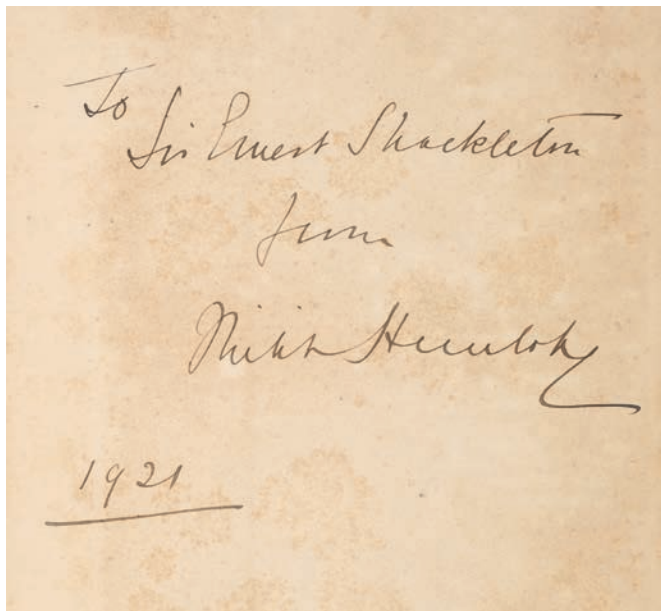 To
Sir Ernest Shackleton
from
1921